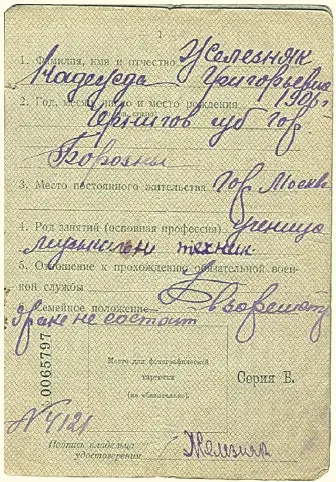 1
Железняк
1. Фамилия, имя и отчество
Надежда Григорьевна
2. Год, месяц, число и место рождения 1906 г
Чернигов губ гор
Борозны
3. Место постоянного жительства гор Москва
4. Род занятий (основная профессия) ученица
музыкальн техник
5. Отношение к прохождению обязательной воен-
ной службы
6. Семейное положение В
браке не состоит
0065797
Место для фотографической
карточки
(не обязательно).
Серия В.
N 4121
Подпись владельца
удостоверения
Железняк